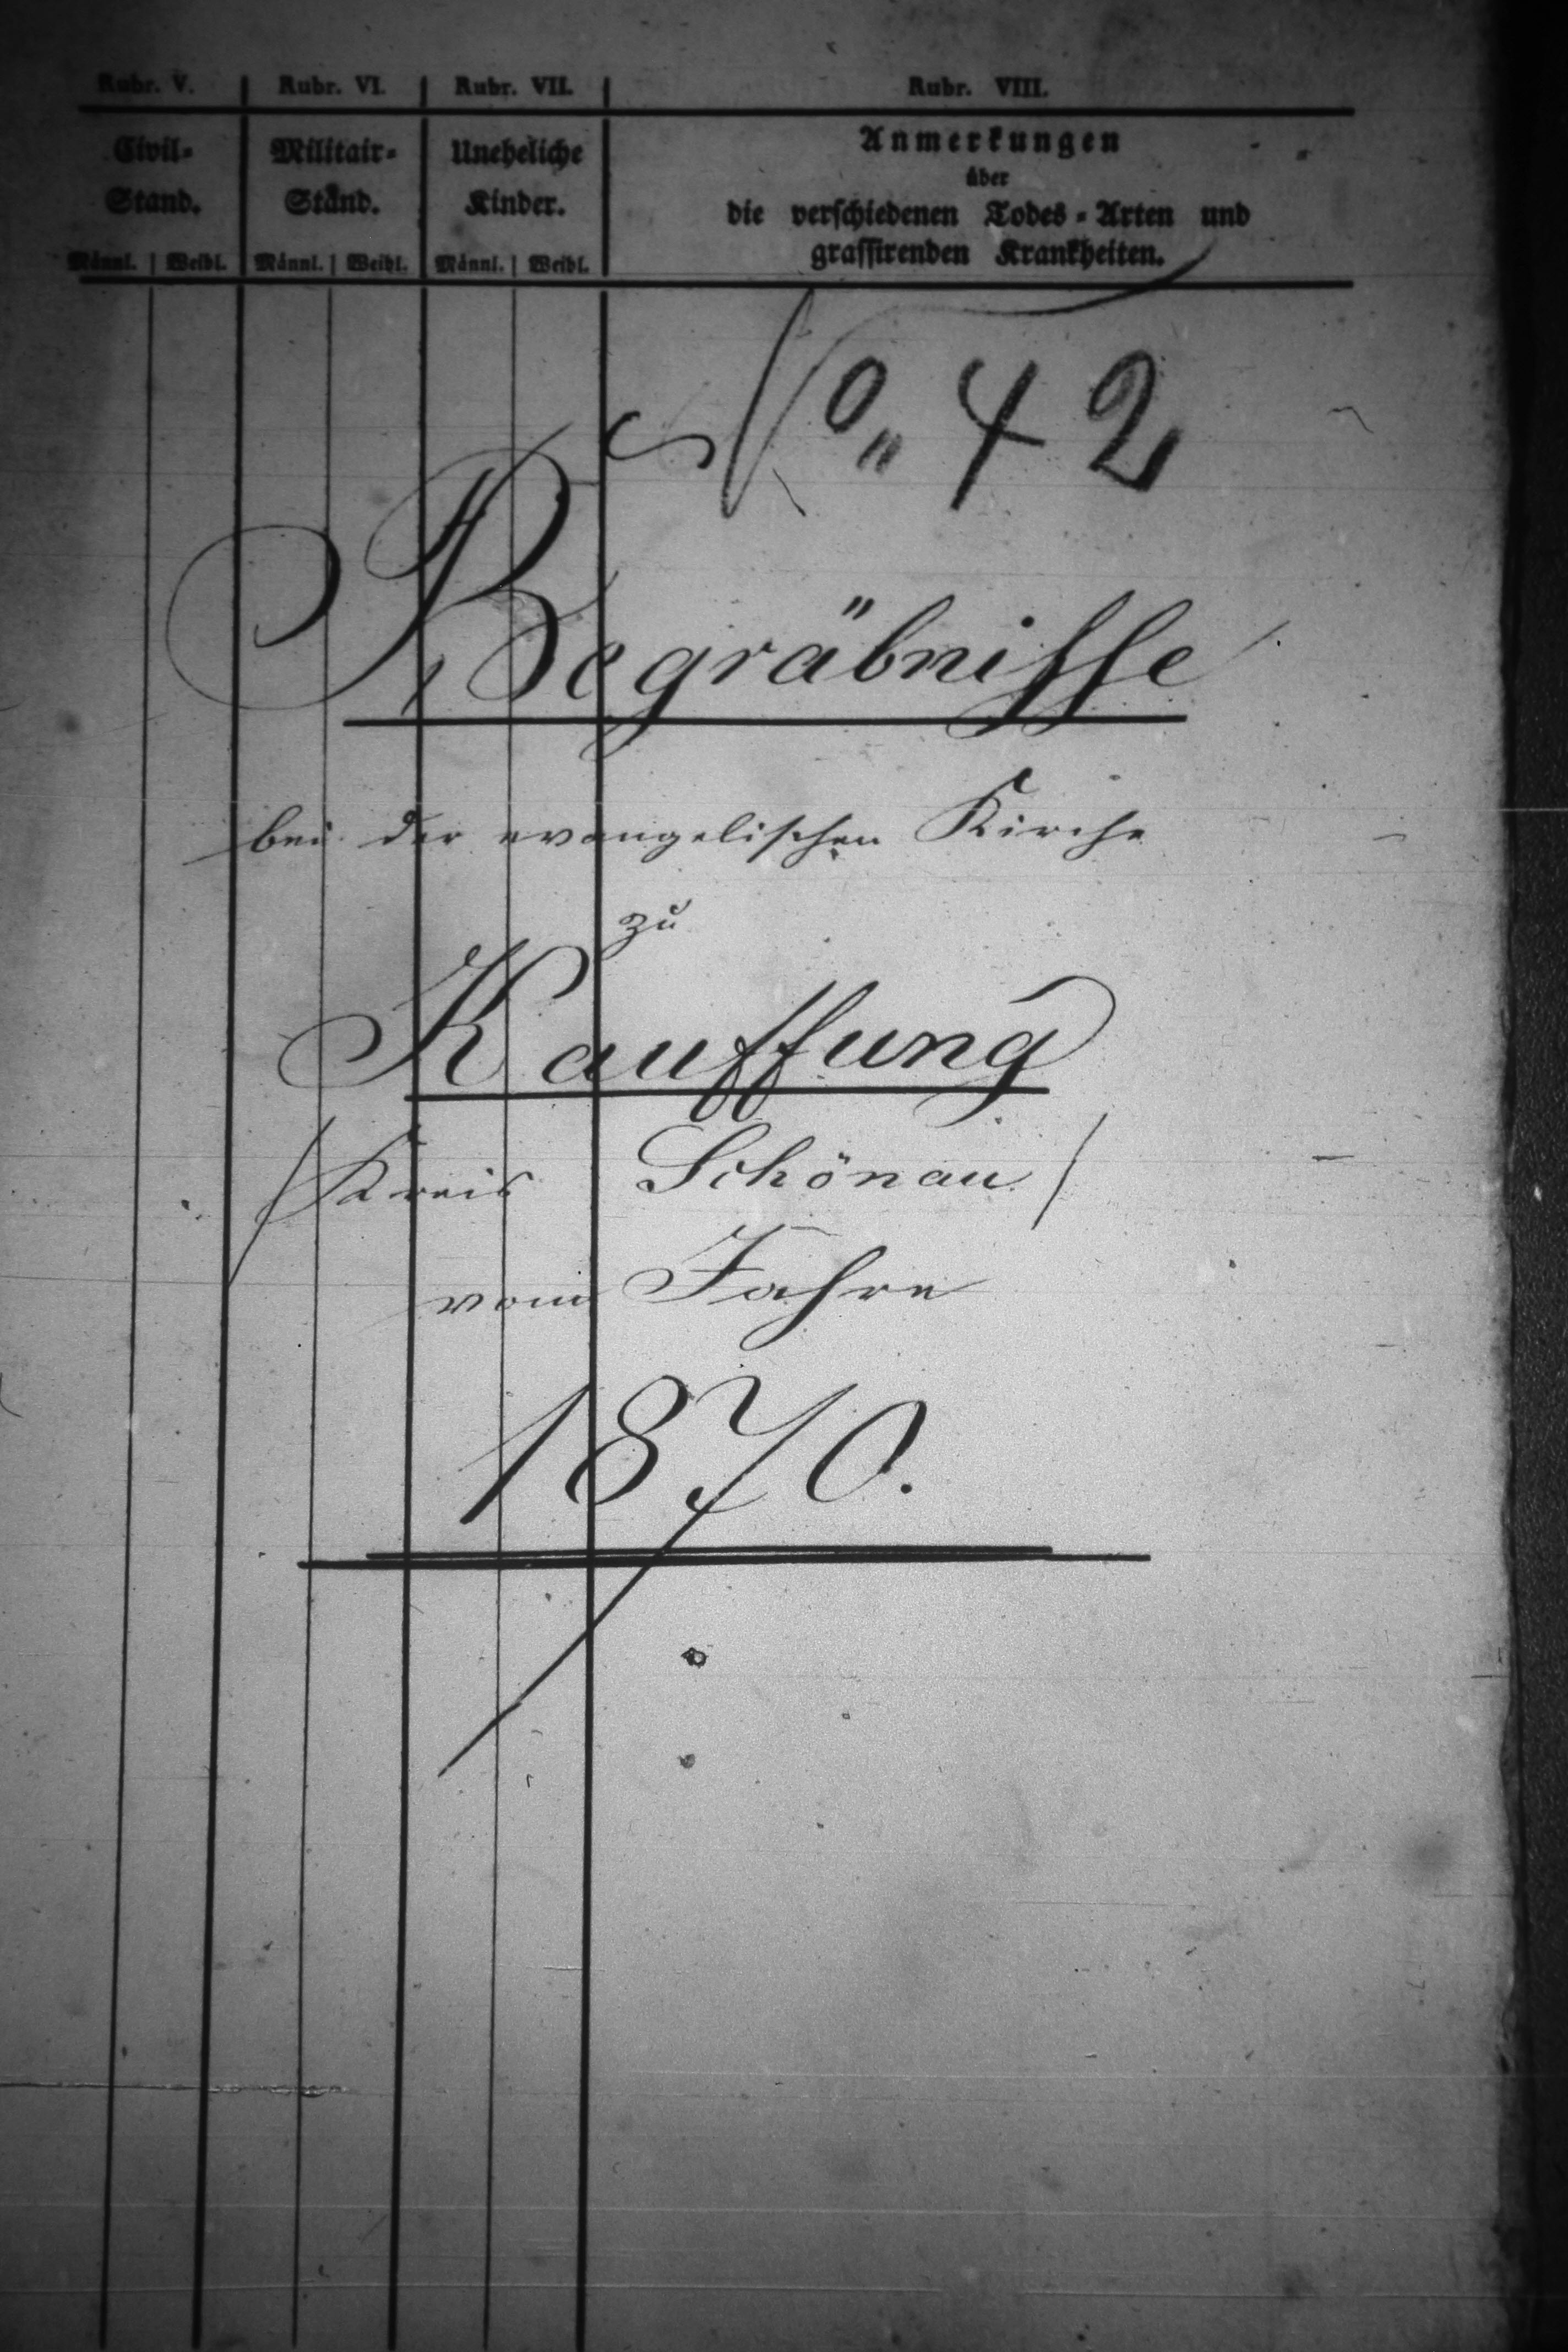 Rubr. V. Rubr. VI. Rubr. VII. Rubr. VIII.
Civil- Militair- Uneheliche Anmerkungen
über
Stand. Stand. Kinder. die verschiedenen Todes-Arten und
Männl. Weibl. Männl. Weibl. Männl. Weibl. grassirenden Krankheiten.
No 42
Begräbnisse
bei der evangelischen Kirche
zu
Kauffung
/Kreis Schönau/
vom Jahre
1870.